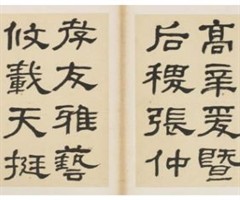 高辛爰暨
后稷張仲
孝友雅藝
攸載天挺